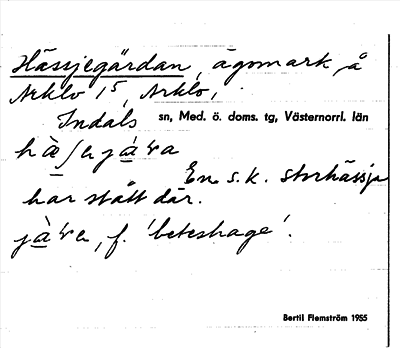 Hässjegärdan, ägomark, å
Arklo 1⁵, Arklo,
Indals sn, Med. ö. doms. tg, Västernorrl. län
En s.k. storhässja
har stått där.
f. 'beteshage'.
Bertil Flemström 1955